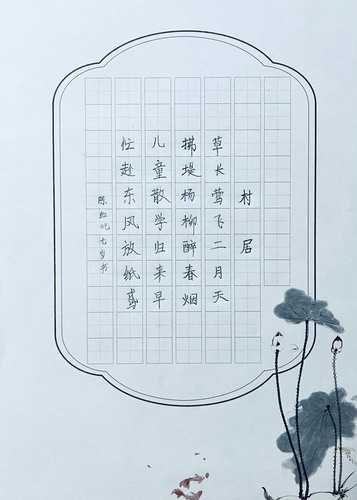 村居
草长莺飞二月天
拂堤杨柳醉春烟
儿童散学归来早
忙趁东风放纸鸢
陈 七岁书